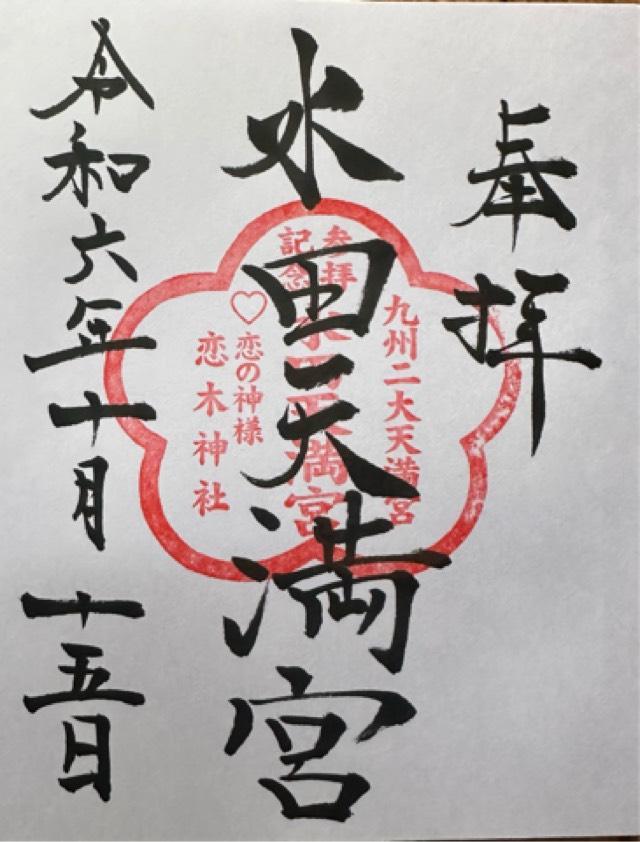 奉拝
水田天満宮
令和六年十月十五日
九州二大天満宮
参拝
記念
水田天満宮
♡恋の神様
恋木神社